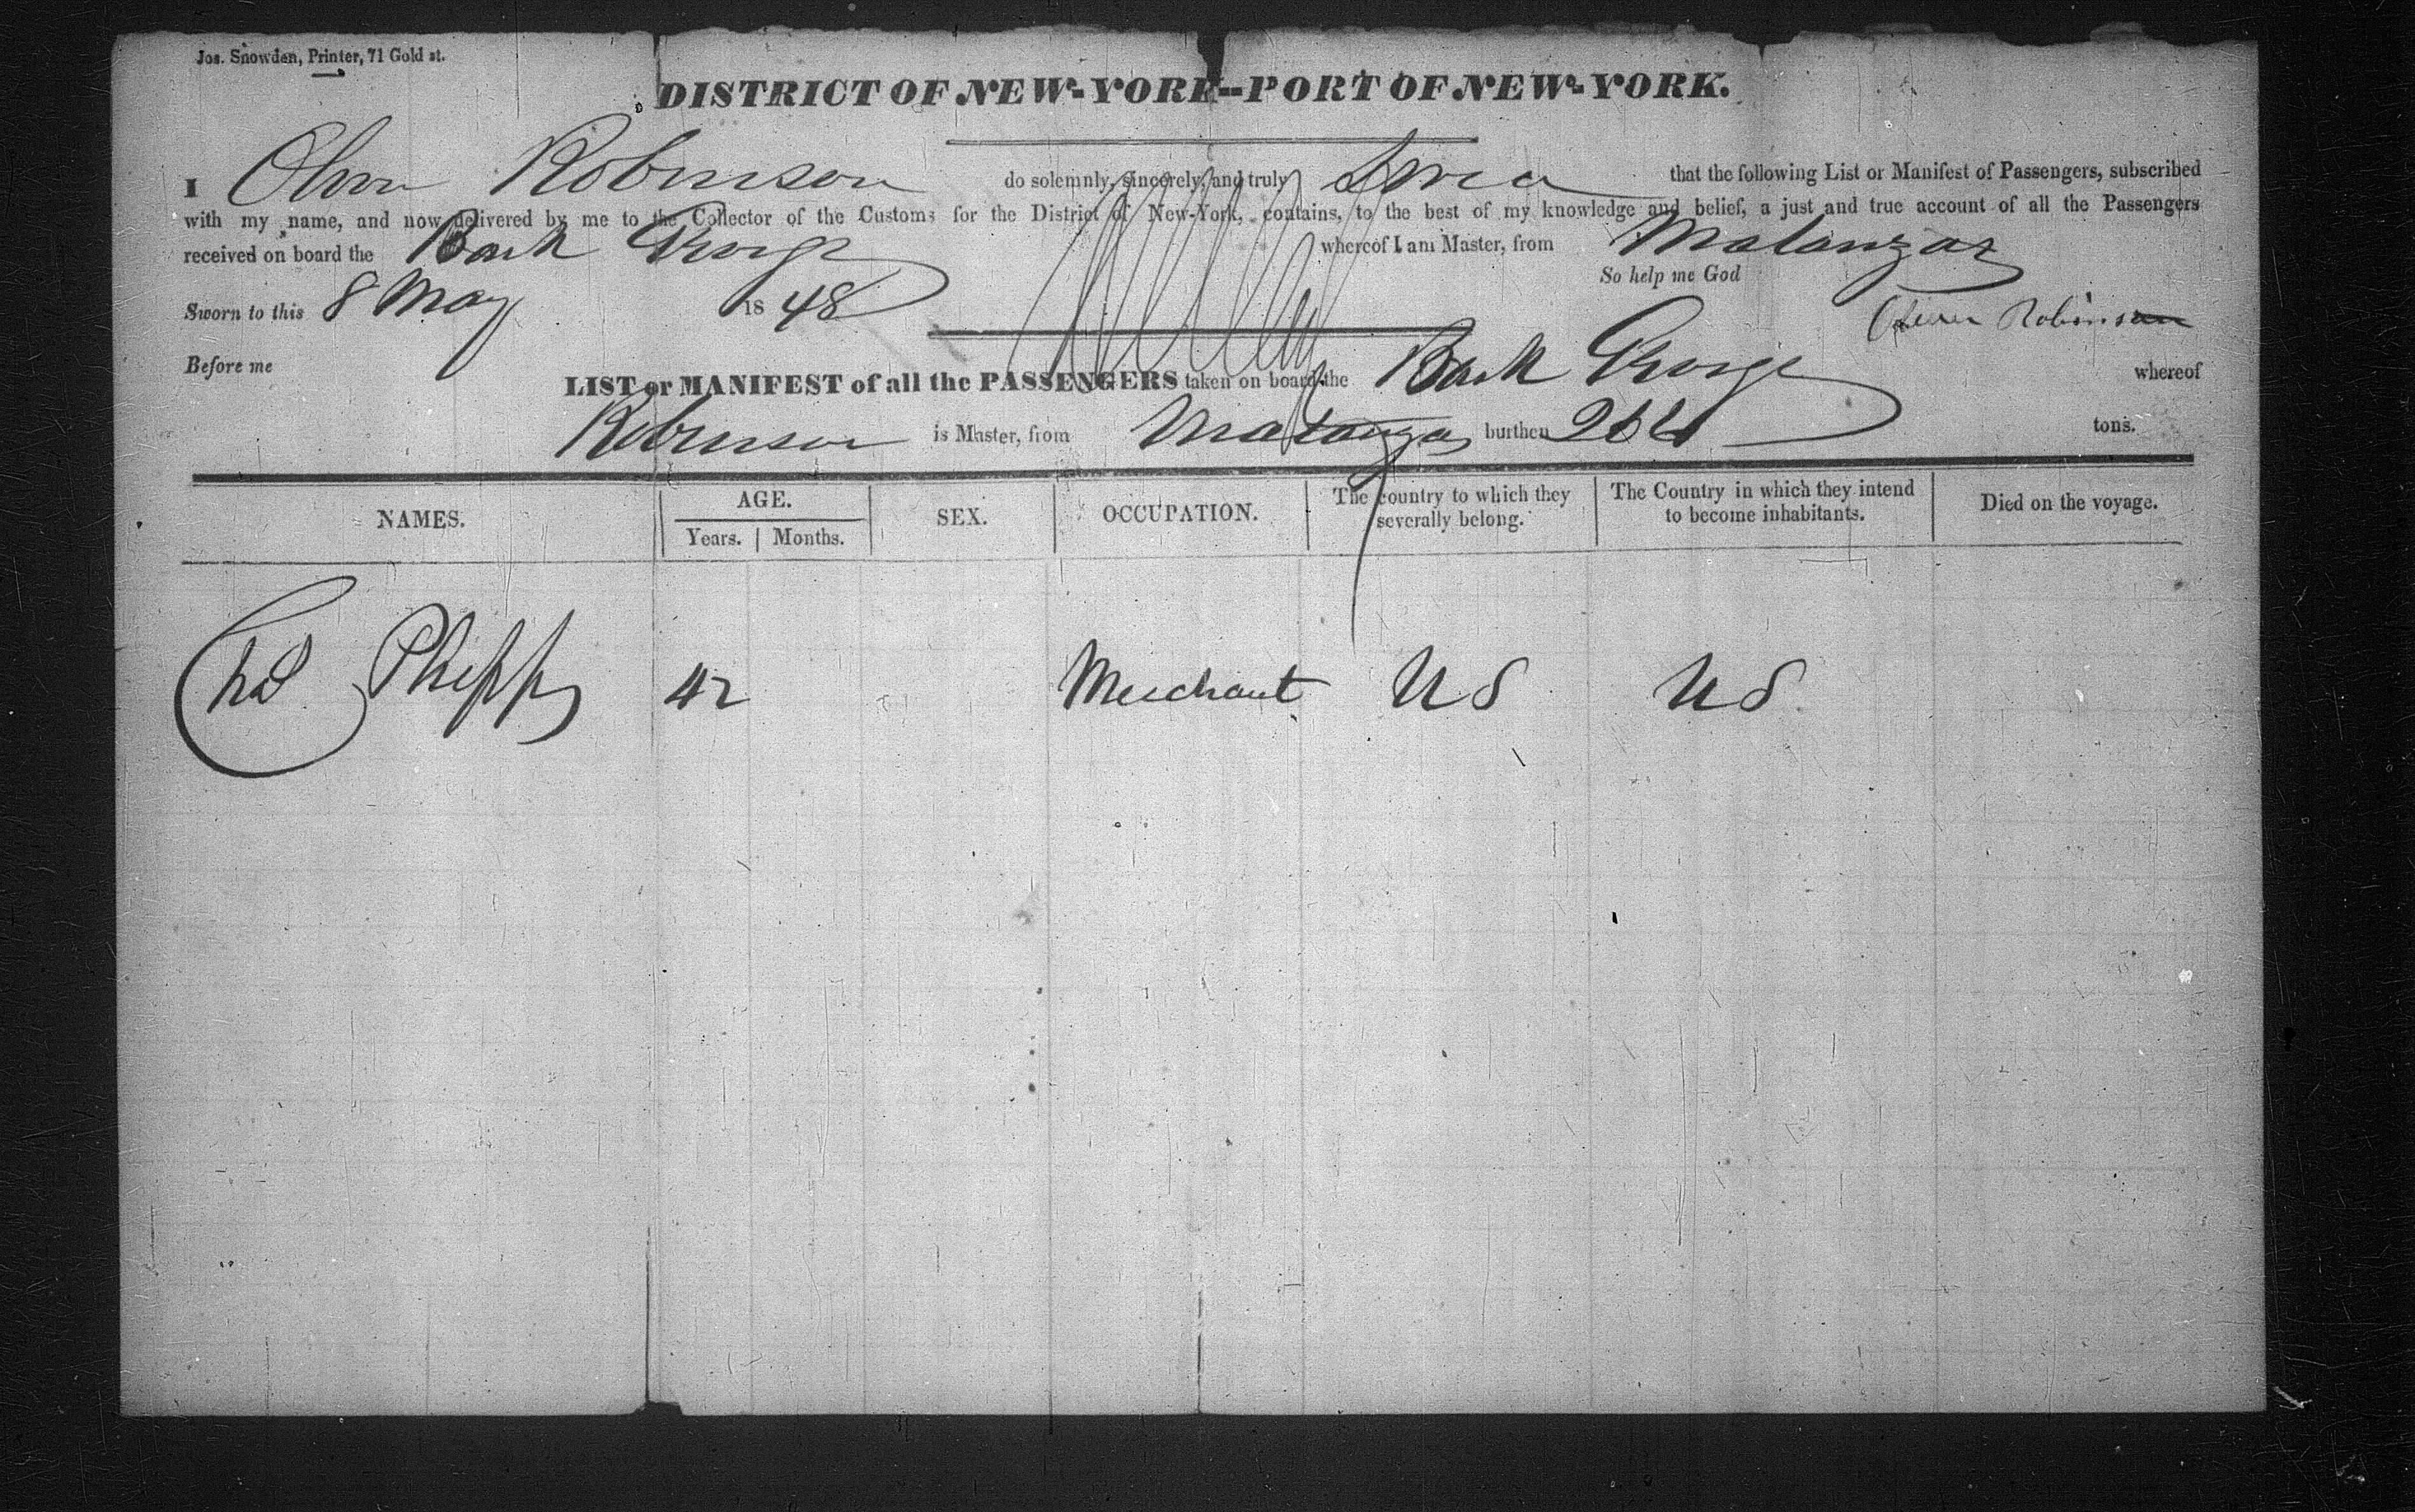 Jos. Snowden, Printer, 71 Gold st.
DISTRICT OF NEW-YORK--PORT OF NEW-YORK.
I Oliver Robinson do solemnly, sincerely, and truly that the following List or Manifest of Passengers, subscribed
with my name, and now delivered by me to the Collector of the Customs for the District of New-York, contains, to the best of my knowledge and belief, a just and true account of all the Passengers
received on board the Bark George whereof I am Master, from Matanzas
So help me God
Sworn to this 8 May 1848 Oliver Robinson
Before me
LIST or MANIFEST of all the PASSENGERS taken on board the Bark George whereof
Robinson is Master, from Matanzas burthen tons.
NAMES. AGE. SEX. OCCUPATION. The country to which they severally belong. The Country in which they intend to become inhabitants. Died on the voyage.
Years. Months.
Chas Phipps 42 Merchant US US